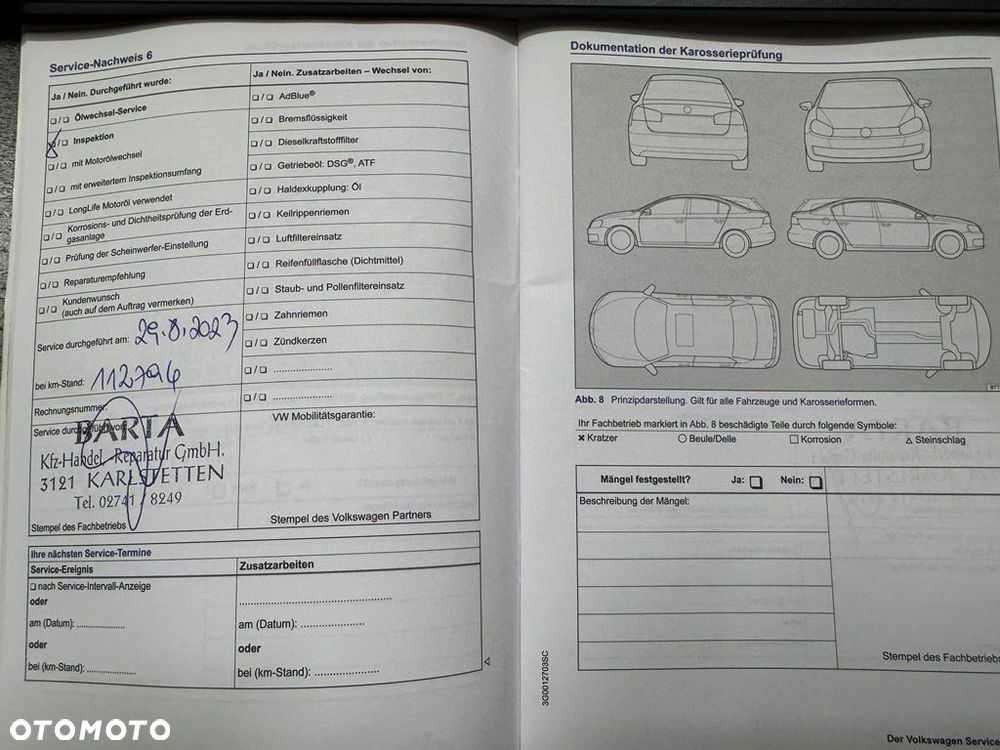 Service-Nachweis 6
Ja / Nein. Durchgeführt wurde:
❏/❏ Ölwechsel-Service
❏/❏ Inspektion
❏/❏ mit Motorölwechsel
❏/❏ mit erweitertem Inspektionsumfang
❏/❏ LongLife Motoröl verwendet
❏/❏ Korrosions- und Dichtheitsprüfung der Erd-
gasanlage
❏/❏ Prüfung der Scheinwerfer-Einstellung
❏/❏ Reparaturempfehlung
❏/❏ Kundenwunsch
(auch auf dem Auftrag vermerken)
Service durchgeführt am: 29.8.2023
bei km-Stand: 112794
Rechnungsnummer:
Service durchgeführt von:
BARTA
Kfz-Handel, Reparatur GmbH.
3121 KARLSTETTEN
Tel. 02741 / 8249
Stempel des Fachbetriebs
Ja / Nein. Zusatzarbeiten – Wechsel von:
❏/❏ AdBlue®
❏/❏ Bremsflüssigkeit
❏/❏ Dieselkraftstofffilter
❏/❏ Getriebeöl: DSG®, ATF
❏/❏ Haldexkupplung: Öl
❏/❏ Keilrippenriemen
❏/❏ Luftfiltereinsatz
❏/❏ Reifenfüllflasche (Dichtmittel)
❏/❏ Staub- und Pollenfiltereinsatz
❏/❏ Zahnriemen
❏/❏ Zündkerzen
❏/❏ .....................
❏/❏ .....................
VW Mobilitätsgarantie:
Stempel des Volkswagen Partners
Ihre nächsten Service-Termine
Service-Ereignis
❏ nach Service-Intervall-Anzeige
oder
am (Datum): .....................
oder
bei (km-Stand): .....................
Zusatzarbeiten
.....................
am (Datum): .....................
oder
bei (km-Stand): .....................
Dokumentation der Karosserieprüfung
Abb. 8 Prinzipdarstellung. Gilt für alle Fahrzeuge und Karosserieformen.
Ihr Fachbetrieb markiert in Abb. 8 beschädigte Teile durch folgende Symbole:
✕ Kratzer ○ Beule/Delle □ Korrosion △ Steinschlag
Mängel festgestellt? Ja: ❏ Nein: ❏
Beschreibung der Mängel:
Stempel des Fachbetriebs
3G0012703SC
Der Volkswagen Service
OTOMOTO